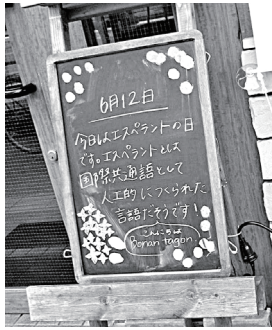 6月12日
今日はエスペラントの日
です。エスペラントとは
国際共通語として
人工的につくられた
言語だそうです!
こんにちは
Bonan tagon